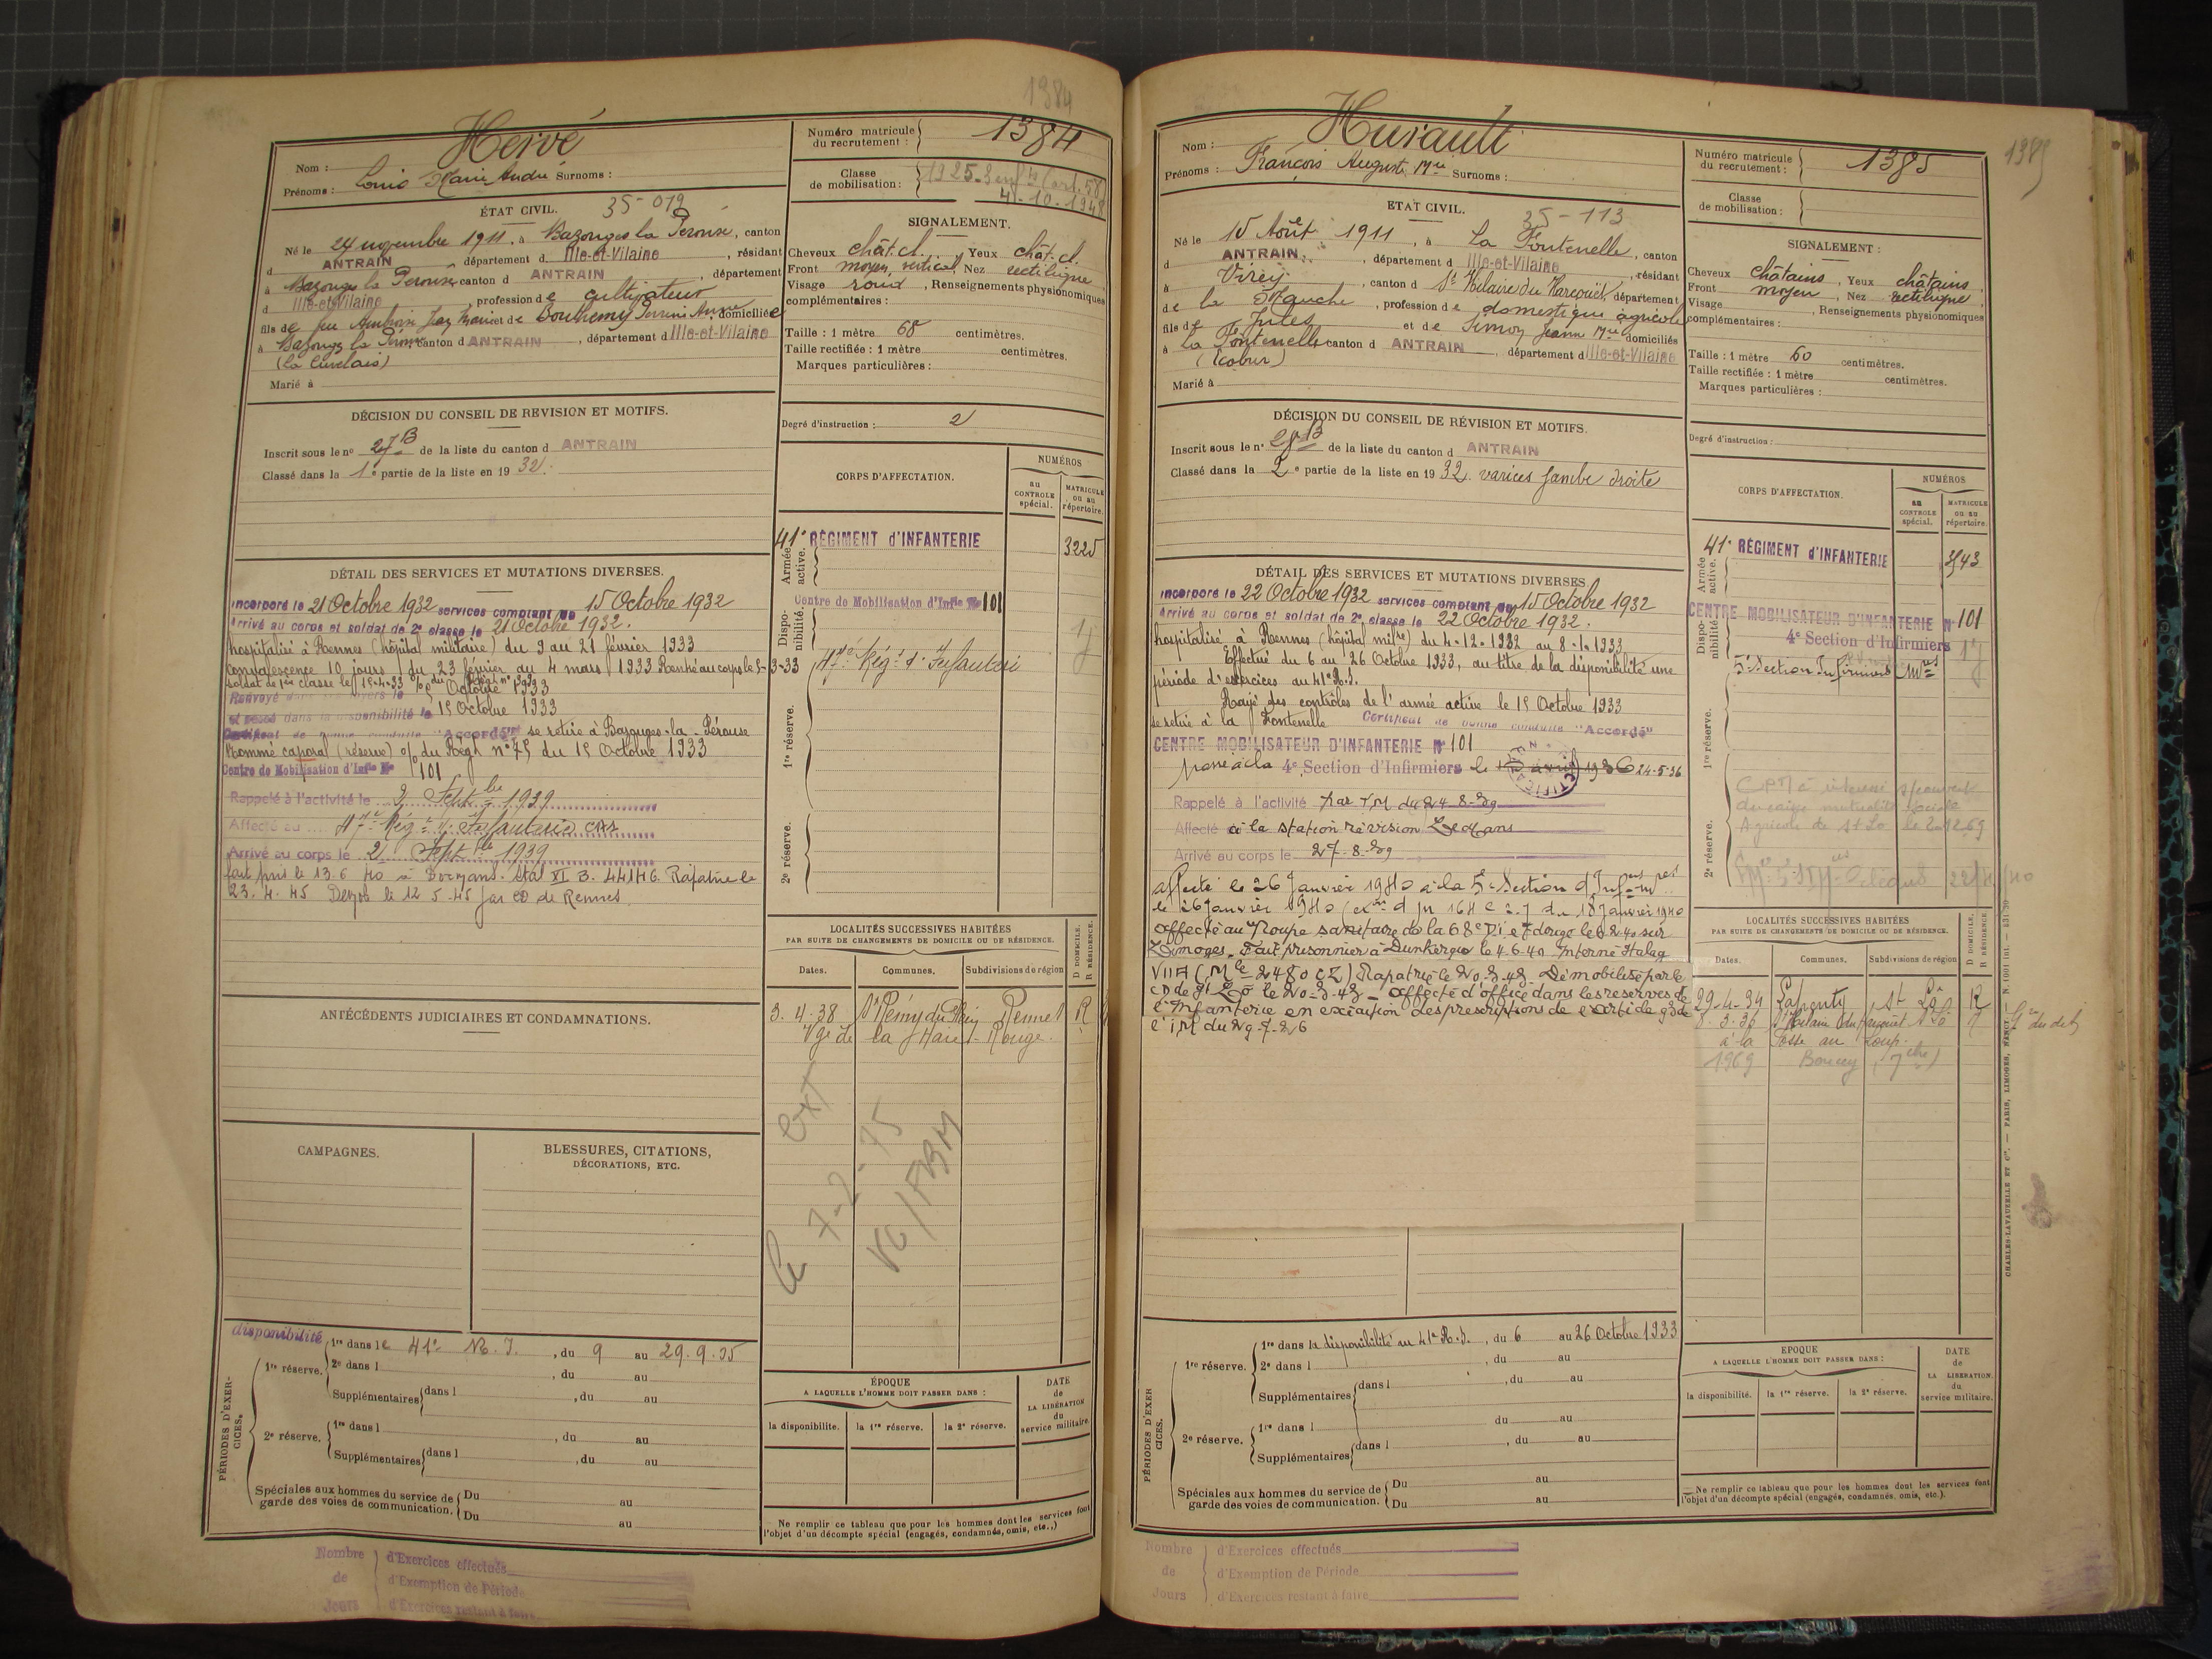 1384
Nom : Hervé
Prénoms : Louis Marie André Surnoms :
Numéro matricule du recrutement : 1384
Classe de mobilisation : 1925 - 3 enfts (art. 58)
4 - 10 - 1948
ÉTAT CIVIL. 35 - 019
Né le 24 novembre 1911, à Bazouges la Pérouse, canton
d ANTRAIN département d Ille-et-Vilaine, résidant
à Bazouges la Pérouse canton d ANTRAIN, département
d Ille-et-Vilaine, profession de cultivateur
fils de feu Ambroise Jean Marie et de Bouthemy Perrine Anne domiciliée
à Bazouges la Pérouse canton d ANTRAIN, département d Ille-et-Vilaine
Marié à
SIGNALEMENT.
Cheveux chât. cl. Yeux chât. cl.
Front moyen, vertical Nez rectiligne
Visage rond, Renseignements physionomiques
complémentaires :
Taille : 1 mètre 68 centimètres.
Taille rectifiée : 1 mètre centimètres.
Marques particulières :
DÉCISION DU CONSEIL DE REVISION ET MOTIFS.
Inscrit sous le no 27 B de la liste du canton d ANTRAIN
Classé dans la 1e partie de la liste en 19 32.
Degré d'instruction : 2
CORPS D'AFFECTATION.
NUMÉROS
au CONTROLE spécial.
MATRICULE ou au répertoire.
Armée active.
41e RÉGIMENT d'INFANTERIE 3225
Disponibilité.
Centre de Mobilisation d'Infie No 101
47e Rég. d'Infanterie
1re réserve.
2e réserve.
DÉTAIL DES SERVICES ET MUTATIONS DIVERSES.
Incorporé le 21 Octobre 1932 services comptant du 15 Octobre 1932
Arrivé au corps et soldat de 2e classe le 21 Octobre 1932.
hospitalisé à Rennes (hôpital militaire) du 9 au 21 février 1933
Convalescence 10 jours du 23 février au 4 mars 1933 Rentré au corps le 5-3-33
Soldat de 1ère classe le 15-4-33
Renvoyé dans ses foyers le Octobre 1933
et passé dans la disponibilité le 15 Octobre 1933
Certificat de bonne conduite "Accordé" se retire à Bazouges-la-Pérouse
Nommé caporal (réserve) o/ du Régt no 45 du 15 Octobre 1933
Centre de Mobilisation d'Infie No 101
Rappelé à l'activité le 2 Septbre 1939
Affecté au 47e Rég. d'Infanterie
Arrivé au corps le 2 Septbre 1939
fait pris le 13.6 40 à Stal XI B. 44146. Rapatrié le
23.4.45 Démob le 12 5-45 par CD de Rennes
ANTÉCÉDENTS JUDICIAIRES ET CONDAMNATIONS.
LOCALITÉS SUCCESSIVES HABITÉES
PAR SUITE DE CHANGEMENTS DE DOMICILE OU DE RÉSIDENCE.
Dates. Communes. Subdivisions de région D DOMICILE. R RÉSIDENCE.
3.4.38 St Rémy du Plain Rennes R
Vge de la Haie Rouge.
Le 7-2-75
CAMPAGNES.
BLESSURES, CITATIONS, DÉCORATIONS, ETC.
PÉRIODES D'EXERCICES.
disponibilité
1re réserve. 1re dans le 41e R.I., du 9 au 29.9.35
2e dans l , du au
Supplémentaires dans l , du au
2e réserve. 1re dans l , du au
Supplémentaires dans l , du au
Spéciales aux hommes du service de garde des voies de communication. Du au
Du au
ÉPOQUE
A LAQUELLE L'HOMME DOIT PASSER DANS :
la disponibilité. la 1re réserve. la 2e réserve.
DATE de LA LIBÉRATION du service militaire.
Ne remplir ce tableau que pour les hommes dont les services font
l'objet d'un décompte spécial (engagés, condamnés, omis, etc..)
Nombre de Jours
d'Exercices effectués
d'Exemption de Période
d'Exercices restant à faire
1385
Nom : Hurault
Prénoms : François Auguste Mie Surnoms :
Numéro matricule du recrutement : 1385
Classe de mobilisation :
ETAT CIVIL. 35 - 113
Né le 15 Août 1911, à La Fontenelle, canton
d ANTRAIN, département d Ille-et-Vilaine, résidant
à Virey, canton d St Hilaire du Harcouët, département
de la Manche, profession de domestique agricole
fils de Jules et de Simon Jeanne Mie domiciliés
à la Fontenelle canton d ANTRAIN, département d Ille-et-Vilaine
(Ecobur)
Marié à
SIGNALEMENT :
Cheveux châtains, Yeux châtains
Front moyen, Nez rectiligne
Visage , Renseignements physionomiques
complémentaires :
Taille : 1 mètre 60 centimètres.
Taille rectifiée : 1 mètre centimètres.
Marques particulières :
DÉCISION DU CONSEIL DE RÉVISION ET MOTIFS.
Inscrit sous le no 28 B de la liste du canton d ANTRAIN
Classé dans la 2e partie de la liste en 19 32. varices jambe droite
Degré d'instruction :
CORPS D'AFFECTATION.
NUMÉROS
au CONTROLE spécial.
MATRICULE ou au répertoire.
Armée active.
41e RÉGIMENT d'INFANTERIE 3543
Disponibilité.
CENTRE MOBILISATEUR D'INFANTERIE No 101
4e Section d'Infirmiers
5e Section Infirmiers
1re réserve.
2e réserve.
DÉTAIL DES SERVICES ET MUTATIONS DIVERSES
Incorporé le 22 Octobre 1932 services comptant du 15 Octobre 1932
Arrivé au corps et soldat de 2e classe le 22 Octobre 1932.
hospitalisé à Rennes (hôpital mire) du 4-12-1932 au 8-1-1933
Effectué du 6 au 26 Octobre 1933, au titre de la disponibilité une
période d'exercices au 41e R.I.
Rayé des contrôles de l'armée active le 15 Octobre 1933
se retire à la Fontenelle Certificat de bonne conduite "Accordé"
CENTRE MOBILISATEUR D'INFANTERIE No 101
passé à la 4e Section d'Infirmiers le 15 avril 1936 24-5-36
Rappelé à l'activité par TM du 24-8-39
Affecté à la station révision Le Mans
Arrivé au corps le 27-8-39
affecté le 26 Janvier 1940 à la 5e Section d'Inf
le 26 Janvier 1940 du 18 Janvier 1940
affecté au Groupe sanitaire de la 68e D.I. le 6 2 40 sur
Limoges. Fait prisonnier à Dunkerque le 4.6.40 Interné Stalag
VII A (Mle 2480 CZ) Rapatrié le 20.3.43. Démobilisé par le
CD de St Lô le 20-3-43 - affecté d'office dans les réserves de
l'Infanterie en exécution des prescriptions de l'article 93 de
l'IM du 29-7-26
LOCALITÉS SUCCESSIVES HABITÉES
PAR SUITE DE CHANGEMENTS DE DOMICILE OU DE RÉSIDENCE.
Dates. Communes. Subdivisions de région D DOMICILE. R RÉSIDENCE.
29-4-34 Lapenty St Lô R
8.3.36 St Hilaire du Harcouët St Lô
à la Fosse au Loup.
1969 Boucey (Mche)
PÉRIODES D'EXERCICES.
1re réserve. 1re dans la disponibilité au 41e R.I., du 6 au 26 Octobre 1933
2e dans l , du au
Supplémentaires dans l , du au
2e réserve. 1re dans l du au
Supplémentaires dans l , du au
Spéciales aux hommes du service de garde des voies de communication. Du au
Du au
EPOQUE
A LAQUELLE L'HOMME DOIT PASSER DANS :
la disponibilité. la 1re réserve. la 2e réserve.
DATE de LA LIBERATION du service militaire.
Ne remplir ce tableau que pour les hommes dont les services font
l'objet d'un décompte spécial (engagés, condamnés, omis, etc.).
Nombre de Jours
d'Exercices effectués
d'Exemption de Période
d'Exercices restant à faire
CHARLES-LAVAUZELLE ET Cie. — PARIS, LIMOGES, NANCY.